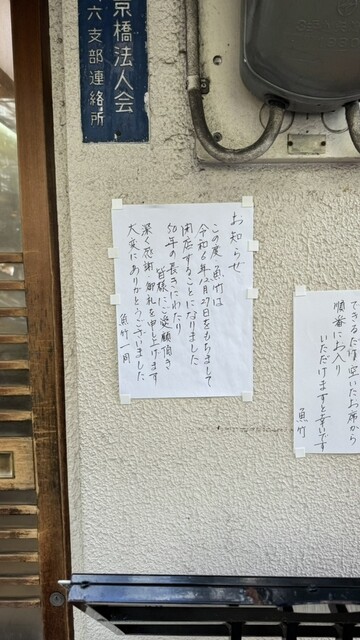 京橋法人会
六支部連絡所
お知らせ
この度、魚竹は
令和6年12月27日をもちまして
閉店することになりました
50年の長きにわたり
皆様にご愛顧頂き
深く感謝御礼を申し上げます
大変にありがとうございました
魚竹一同
できるだけ空いたお席から
順番にお入り
いただけますと幸いです
魚竹